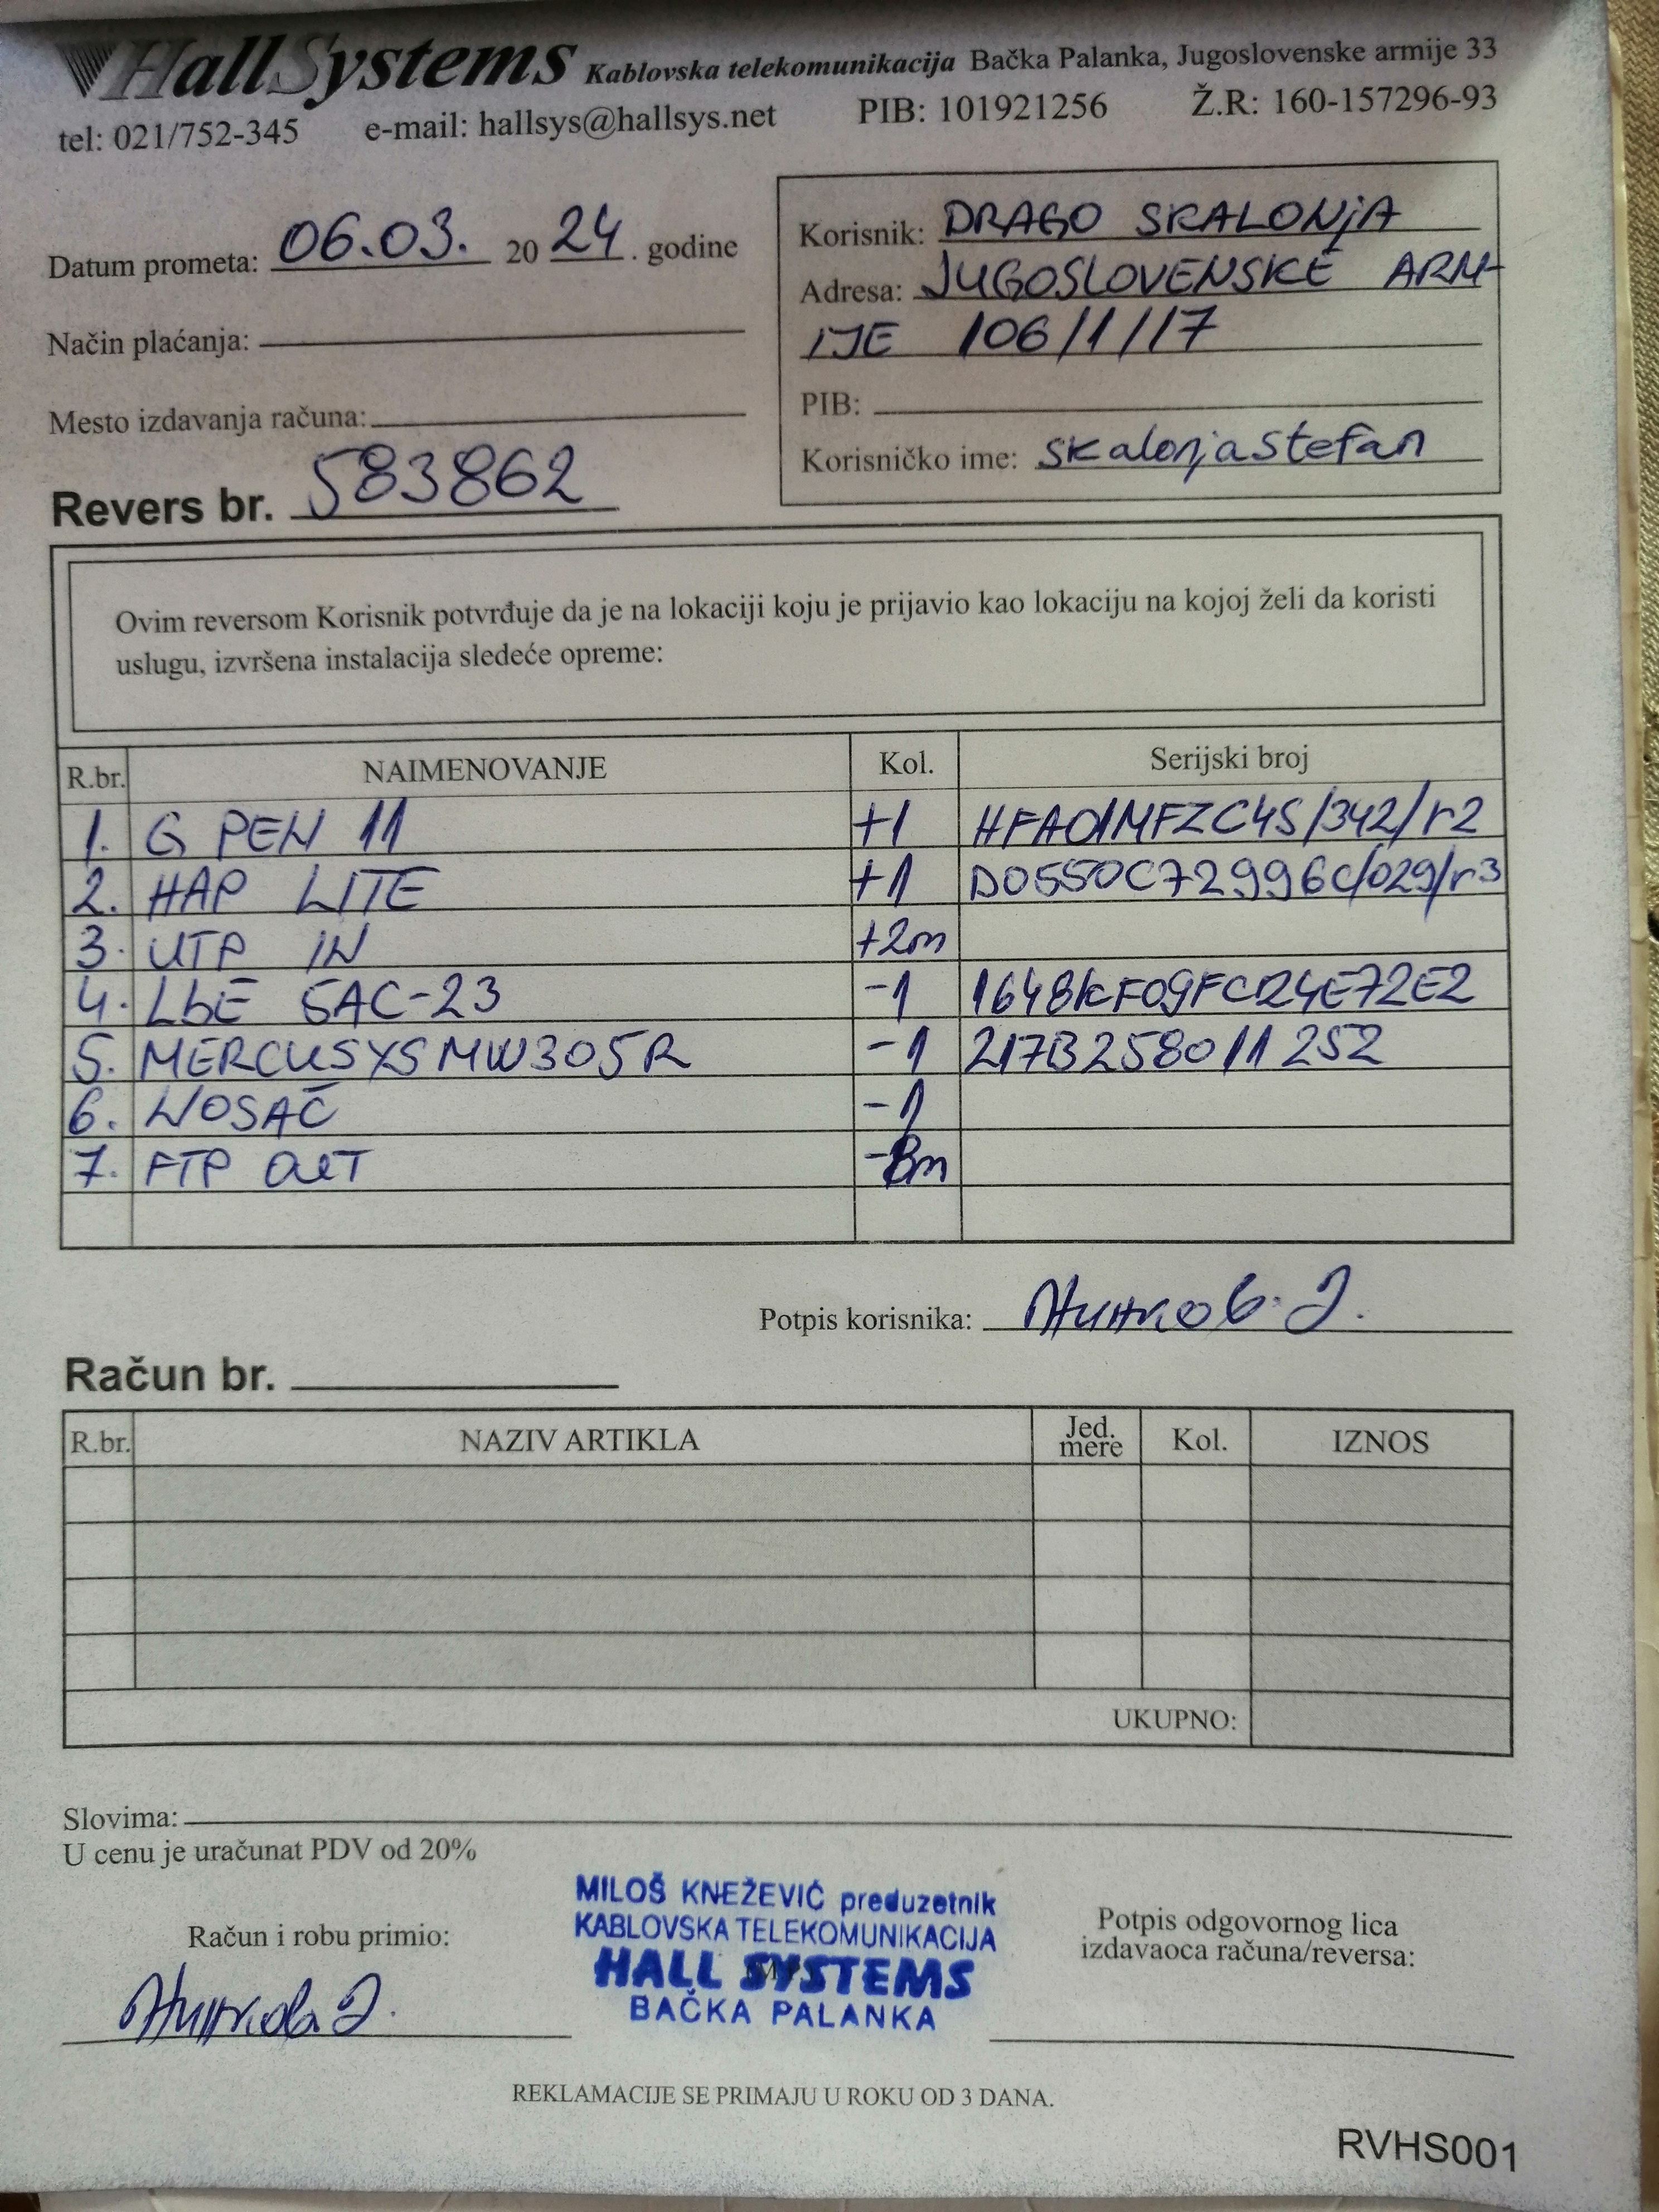 HallSystems Kablovska telekomunikacija Bačka Palanka, Jugoslovenske armije 33
tel: 021/752-345 e-mail: hallsys@hallsys.net PIB: 101921256 Ž.R: 160-157296-93
Datum prometa: 06.03. 20 24. godine
Način plaćanja:
Mesto izdavanja računa:
Revers br. 583862
Korisnik: DRAGO SKALONjA
Adresa: JUGOSLOVENSKE ARM-
IJE 106/1/17
PIB:
Korisničko ime: skalonjastefan
Ovim reversom Korisnik potvrđuje da je na lokaciji koju je prijavio kao lokaciju na kojoj želi da koristi
uslugu, izvršena instalacija sledeće opreme:
R.br. NAIMENOVANJE Kol. Serijski broj
1. G PEN 11 +1 HFA01MFZC4S/342/r2
2. HAP LITE +1 D0550C72996C/029/r3
3. UTP IN +2m
4. LbE 5AC-23 -1 1648KF09FC24E72E2
5. MERCUSYS MW305R -1 217B258011252
6. NOSAČ -1
7. FTP OUT -8m
Potpis korisnika:
Račun br.
R.br. NAZIV ARTIKLA Jed. mere Kol. IZNOS
UKUPNO:
Slovima:
U cenu je uračunat PDV od 20%
Račun i robu primio:
MILOŠ KNEŽEVIĆ preduzetnik
KABLOVSKA TELEKOMUNIKACIJA
HALL SYSTEMS
BAČKA PALANKA
Potpis odgovornog lica
izdavaoca računa/reversa:
REKLAMACIJE SE PRIMAJU U ROKU OD 3 DANA.
RVHS001